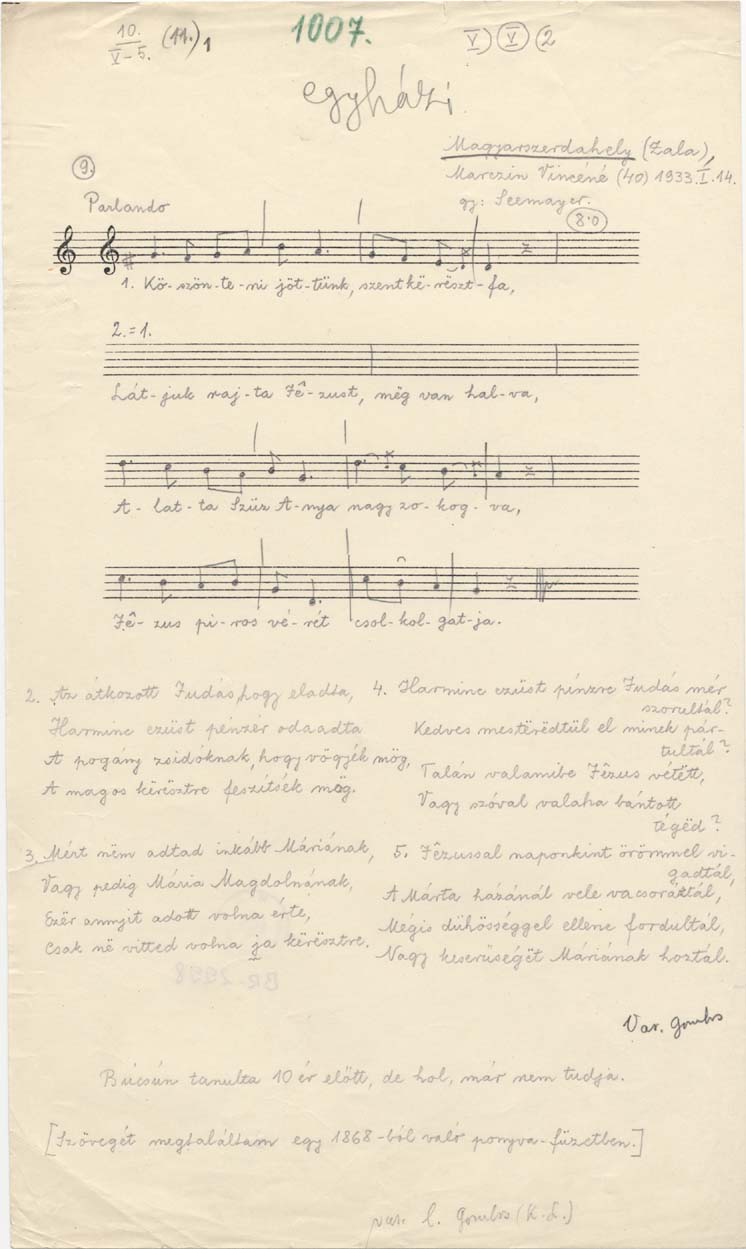 10. (11.)1
V-5.
1007.
V) V (2
egyházi
Magyarszerdahely (Zala),
Marczin Vincéné (40) 1933.I.14.
gy: Seemayer.
9.
Parlando
8·0
1. Kö-szön-te-ni jöt-tünk, szent kë-rëszt-fa,
2.=1.
Lát-juk raj-ta Jê-zust, mëg van hal-va,
A-lat-ta Szüz A-nya nagy zo-kog-va,
Jê-zus pi-ros vé-rét csol-kol-gat-ja.
2. Az átkozott Judás, hogy eladta,
Harminc ezüst pénzér odaadta
A pogány zsidóknak, hogy vögyék mög,
A magos kërësztre feszítsék mög.
3. Mért nëm adtad inkább Máriának,
Vagy pedig Mária Magdolnának,
Ezër annyit adott volna érte,
Csak në vitted volna ja kërësztre.
4. Harminc ezüst pénzre Judás mér
szorultál?
Kedves mestërëdtül el minek pár-
tultál?
Talán valamibe Jêzus vétëtt,
Vagy szóval valaha bántott
tégëd?
5. Jêzussal naponkint örömmel vi-
gadtál,
A Márta házánál vele vacsoráztál,
Mégis dühösséggel ellene fordultál,
Nagy keserüségët Máriának hoztál.
BR-
Var. Gombos
Búcsún tanulta 10 év előtt, de hol, már nem tudja.
[Szövegét megtaláltam egy 1868-ból való ponyva-füzetben.]
var. l. Gombos (K.L.)